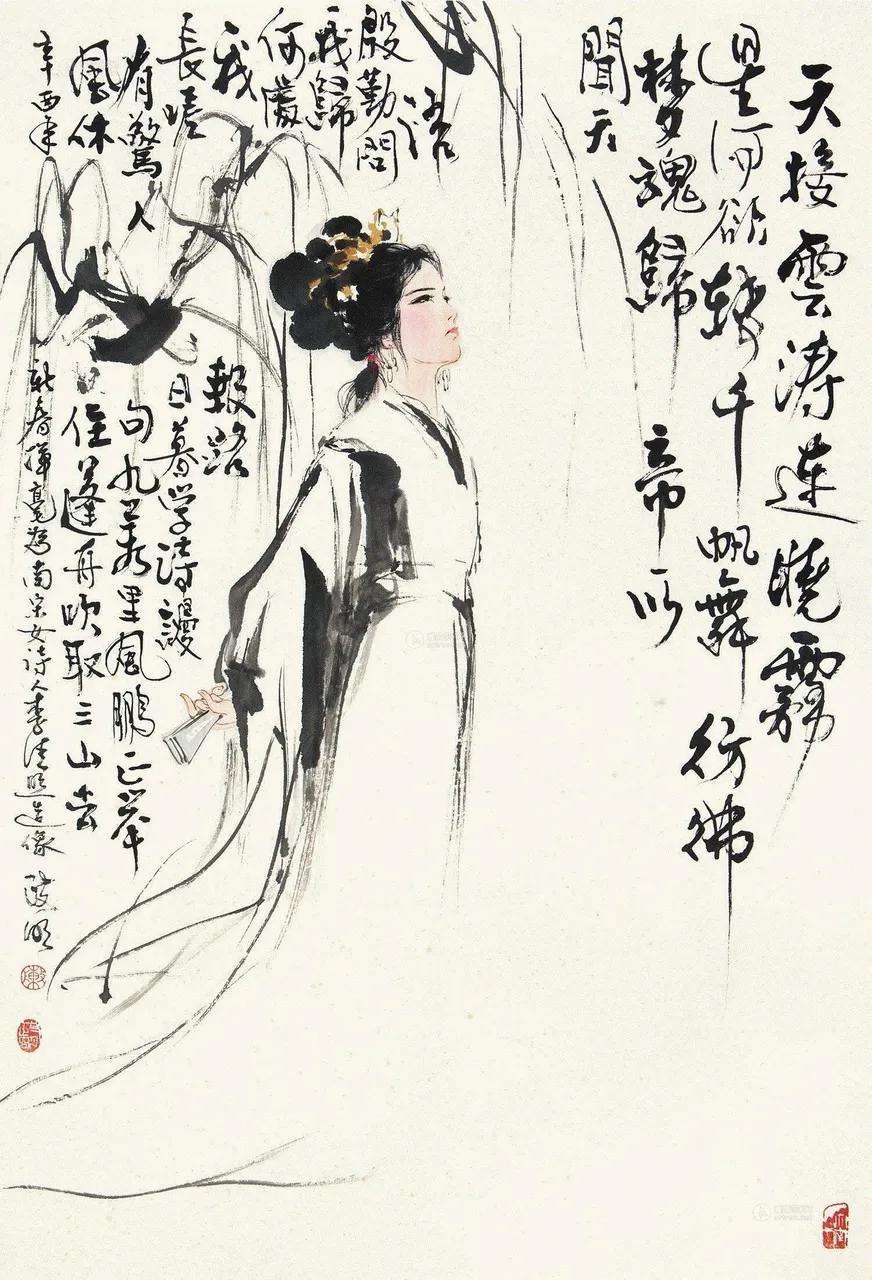 天接雲濤連曉霧
星河欲轉千帆舞彷彿
梦魂歸帝所
聞天
語
殷勤問
我歸
何處
我報路
長嗟日暮学詩謾
有驚人句九萬里風鵬正举
風休住蓬舟吹取三山去
辛酉年新春揮毫為南宋女诗人李清照造像